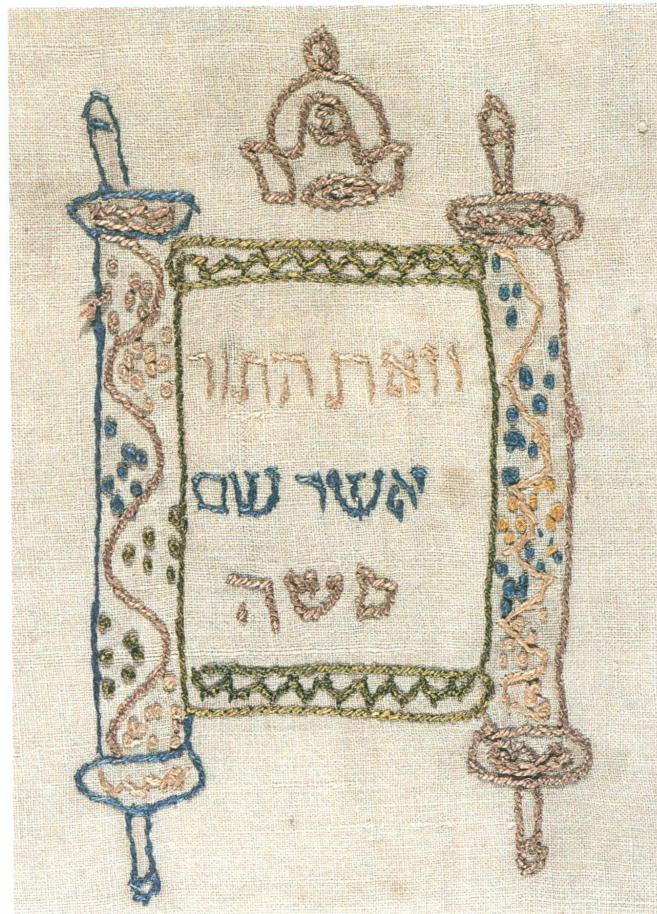 וזאת התור
אשר שם
משה